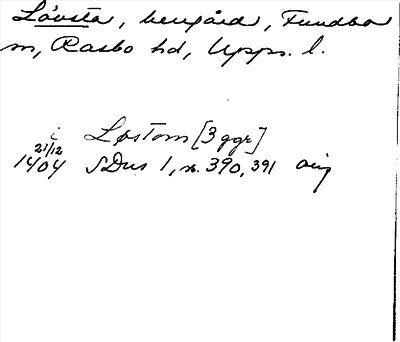 Lövsta, herrgård, Funbo
sn, Rasbo hd, Upps. l.
i Løstom [3 ggr]
21/12
1404 SDns 1, n. 390, 391 orig